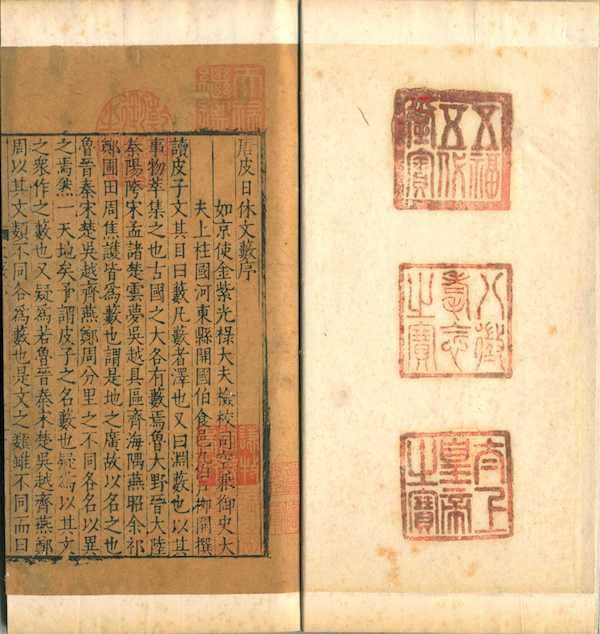 五福
五代
堂寶
八徵
耄念
之寶
太上
皇帝
之寶
天祿
繼鑑
唐皮日休文藪序
如京使金紫光祿大夫檢校司空兼御史大
夫上柱國河東縣開國伯食邑九伯戶柳開撰
讀皮子文其目曰藪凡藪者澤也又曰淵藪也以其
事物萃集之也古國之大各有藪焉魯大野晉大陸
秦陽陓宋孟諸楚雲夢吳越具區齊海隅燕昭余祁
鄭圃田周焦護皆爲藪也謂是地之廣故以名之也
魯晉秦宋楚吳越齊燕鄭周分里之不同各名以異
之焉然一天地矣予謂皮子之名藪也疑爲以其文
之衆作之藪也又疑爲若魯晉秦宋楚吳越齊燕鄭
周以其文類不同各爲藪也是文之類雖不同而曰